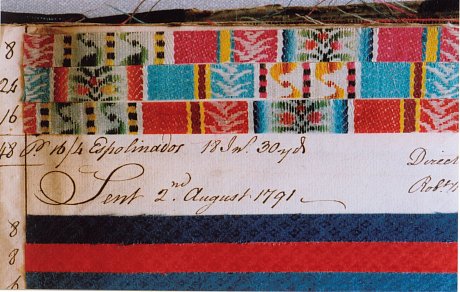 8
24
16
48 Ps 16/4 Espolinados 18 In. 30 yds
Direct
Sent 2nd. August 1791
Robt
8
8